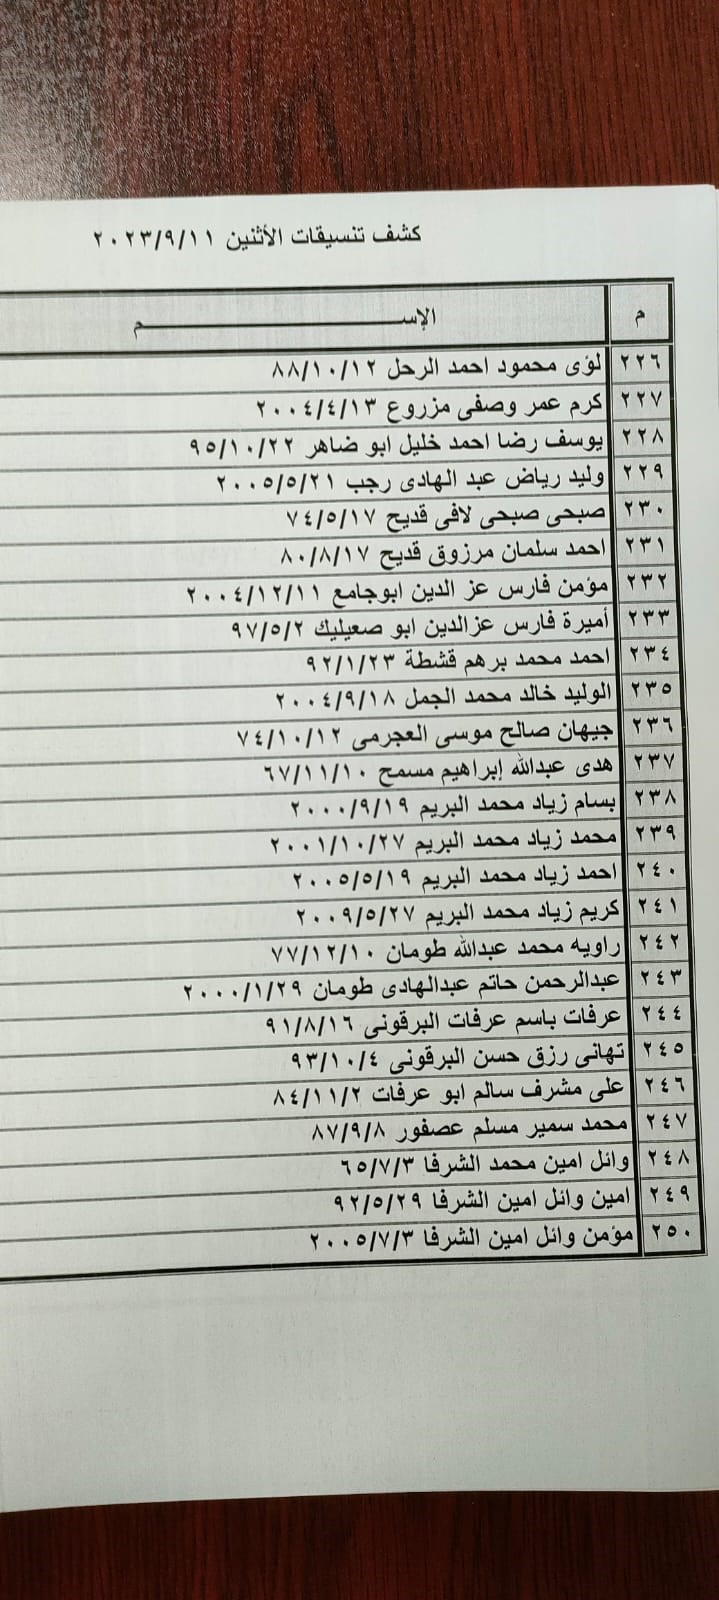 كشف تنسيقات الأثنين ٢٠٢٣/٩/١١
م الإســـــــــم
٢٢٦ لؤى محمود احمد الرحل ٨٨/١٠/١٢
٢٢٧ كرم عمر وصفى مزروع ٢٠٠٤/٤/١٣
٢٢٨ يوسف رضا احمد خليل ابو ضاهر ٩٥/١٠/٢٢
٢٢٩ وليد رياض عبد الهادى رجب ٢٠٠٥/٥/٢١
٢٣٠ صبحى صبحى لافى قديح ٧٤/٥/١٧
٢٣١ احمد سلمان مرزوق قديح ٨٠/٨/١٧
٢٣٢ مؤمن فارس عز الدين ابوجامع ٢٠٠٤/١٢/١١
٢٣٣ أميرة فارس عزالدين ابو صعيليك ٩٧/٥/٢
٢٣٤ احمد محمد برهم قشطة ٩٢/١/٢٣
٢٣٥ الوليد خالد محمد الجمل ٢٠٠٤/٩/١٨
٢٣٦ جيهان صالح موسى العجرمى ٧٤/١٠/١٢
٢٣٧ هدى عبدالله إبراهيم مسمح ٦٧/١١/١٠
٢٣٨ بسام زياد محمد البريم ٢٠٠٠/٩/١٩
٢٣٩ محمد زياد محمد البريم ٢٠٠١/١٠/٢٧
٢٤٠ احمد زياد محمد البريم ٢٠٠٥/٥/١٩
٢٤١ كريم زياد محمد البريم ٢٠٠٩/٥/٢٧
٢٤٢ راويه محمد عبدالله طومان ٧٧/١٢/١٠
٢٤٣ عبدالرحمن حاتم عبدالهادى طومان ٢٠٠٠/١/٢٩
٢٤٤ عرفات باسم عرفات البرقونى ٩١/٨/١٦
٢٤٥ تهانى رزق حسن البرقونى ٩٣/١٠/٤
٢٤٦ على مشرف سالم ابو عرفات ٨٤/١١/٢
٢٤٧ محمد سمير مسلم عصفور ٨٧/٩/٨
٢٤٨ وائل امين محمد الشرفا ٦٥/٧/٣
٢٤٩ امين وائل امين الشرفا ٩٢/٥/٢٩
٢٥٠ مؤمن وائل امين الشرفا ٢٠٠٥/٧/٣